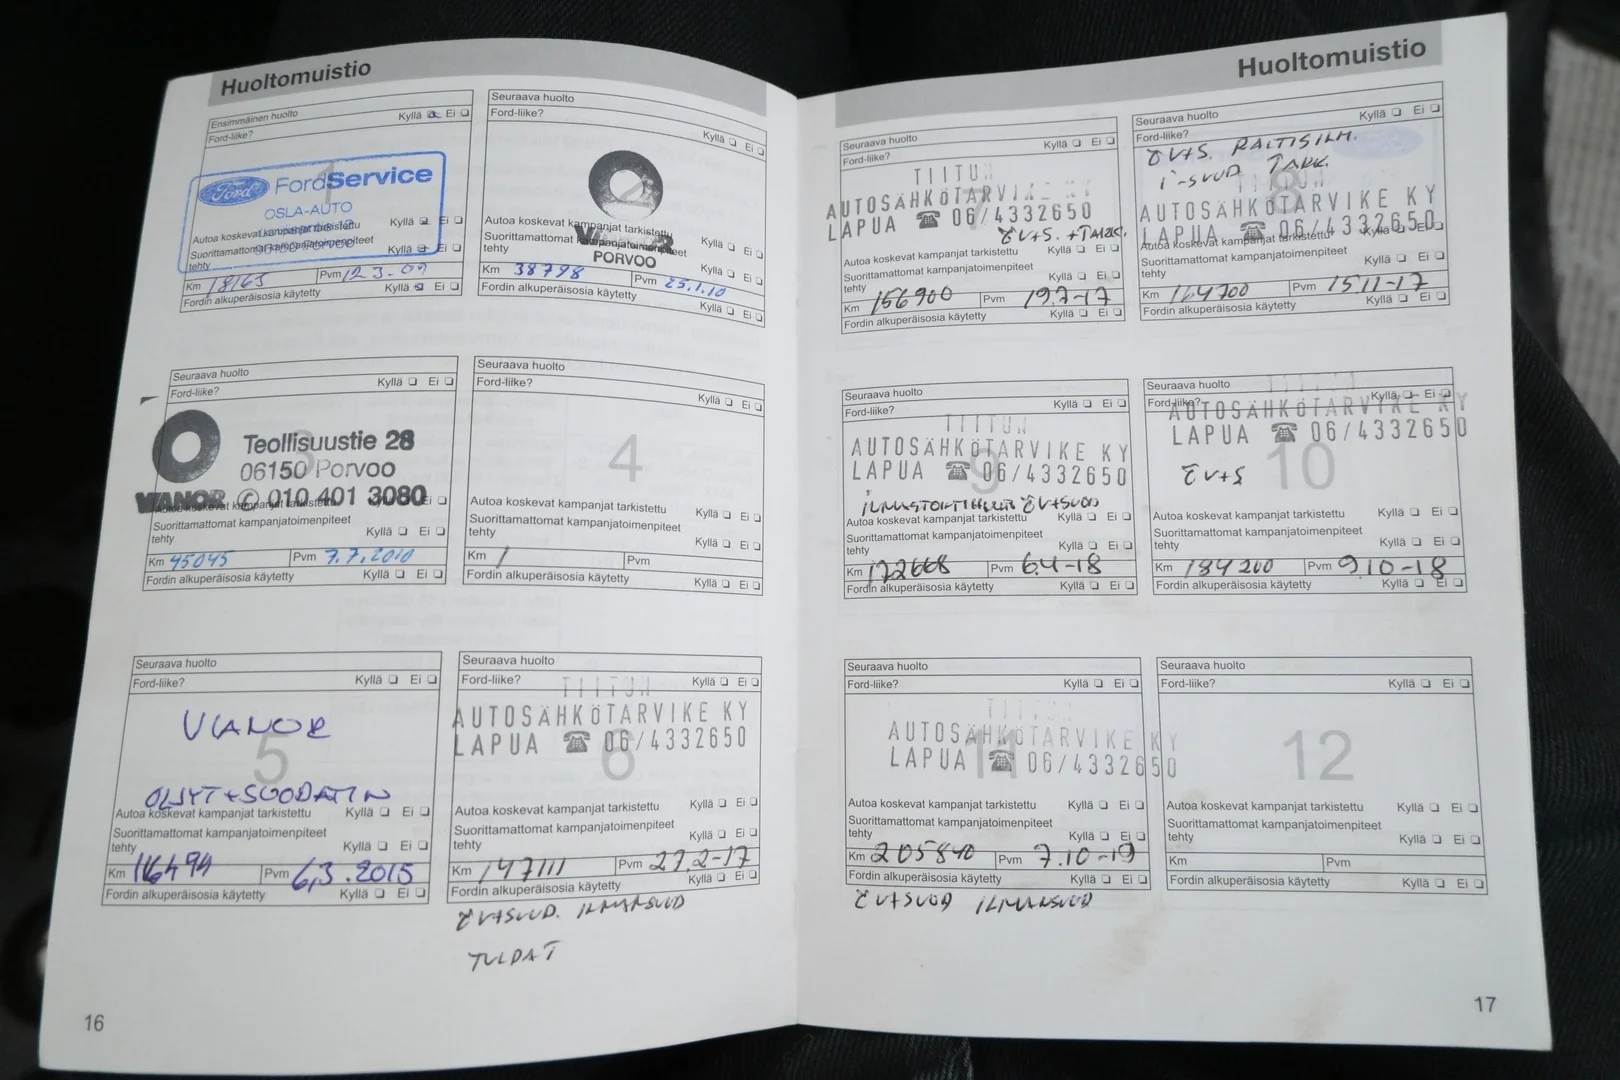 Huoltomuistio
Ensimmäinen huolto
Ford-liike? Kyllä Ei
1
Ford FordService
OSLA-AUTO
Autoa koskevat kampanjat tarkistettu Kyllä Ei
Suorittamattomat kampanjatoimenpiteet
tehty Kyllä Ei
Km 18163 Pvm 12.3.09
Fordin alkuperäisosia käytetty Kyllä Ei
Seuraava huolto
Ford-liike? Kyllä Ei
2
Autoa koskevat kampanjat tarkistettu Kyllä Ei
Suorittamattomat kampanjatoimenpiteet
tehty Kyllä Ei
PORVOO
Km 38798 Pvm 25.1.10
Fordin alkuperäisosia käytetty Kyllä Ei
Seuraava huolto
Ford-liike? Kyllä Ei
3
Teollisuustie 28
06150 Porvoo
VIANOR 010 401 3080
Autoa koskevat kampanjat tarkistettu Kyllä Ei
Suorittamattomat kampanjatoimenpiteet
tehty Kyllä Ei
Km 45045 Pvm 7.7.2010
Fordin alkuperäisosia käytetty Kyllä Ei
Seuraava huolto
Ford-liike? Kyllä Ei
4
Autoa koskevat kampanjat tarkistettu Kyllä Ei
Suorittamattomat kampanjatoimenpiteet
tehty Kyllä Ei
Km / Pvm
Fordin alkuperäisosia käytetty Kyllä Ei
Seuraava huolto
Ford-liike? Kyllä Ei
VIANOR
5
ÖLJYT+SUODATIN
Autoa koskevat kampanjat tarkistettu Kyllä Ei
Suorittamattomat kampanjatoimenpiteet
tehty Kyllä Ei
Km 116494 Pvm 6.3.2015
Fordin alkuperäisosia käytetty Kyllä Ei
Seuraava huolto
Ford-liike? Kyllä Ei
TIITUN
AUTOSÄHKÖTARVIKE KY
LAPUA ☎ 06/4332650
6
Autoa koskevat kampanjat tarkistettu Kyllä Ei
Suorittamattomat kampanjatoimenpiteet
tehty Kyllä Ei
Km 147111 Pvm 27.2-17
Fordin alkuperäisosia käytetty Kyllä Ei
ÖV+SUOD. ILMANSUOD
TULPAT
16
Huoltomuistio
Seuraava huolto
Ford-liike? Kyllä Ei
TIITUN
AUTOSÄHKÖTARVIKE
LAPUA ☎ 06/4332650
ÖV+S. +TARK.
Autoa koskevat kampanjat tarkistettu Kyllä Ei
Suorittamattomat kampanjatoimenpiteet
tehty Kyllä Ei
Km 156900 Pvm 19.7-17
Fordin alkuperäisosia käytetty Kyllä Ei
Seuraava huolto
Ford-liike? Kyllä Ei
ÖV+S. RAITISILM.
I-SUOD TARK.
TIITUN
8
AUTOSÄHKÖTARVIKE KY
LAPUA ☎ 06/4332650
Autoa koskevat kampanjat tarkistettu Kyllä Ei
Suorittamattomat kampanjatoimenpiteet
tehty Kyllä Ei
Km 164700 Pvm 15.11-17
Fordin alkuperäisosia käytetty Kyllä Ei
Seuraava huolto
Ford-liike? Kyllä Ei
TIITUN
AUTOSÄHKÖTARVIKE KY
LAPUA ☎ 06/4332650
9
ÖV+SUOD
Autoa koskevat kampanjat tarkistettu Kyllä Ei
Suorittamattomat kampanjatoimenpiteet
tehty Kyllä Ei
Km 172668 Pvm 6.4-18
Fordin alkuperäisosia käytetty Kyllä Ei
Seuraava huolto
Ford-liike? Kyllä Ei
TIITUN
AUTOSÄHKÖTARVIKE KY
LAPUA ☎ 06/4332650
ÖV+S 10
Autoa koskevat kampanjat tarkistettu Kyllä Ei
Suorittamattomat kampanjatoimenpiteet
tehty Kyllä Ei
Km 184200 Pvm 9.10-18
Fordin alkuperäisosia käytetty Kyllä Ei
Seuraava huolto
Ford-liike? Kyllä Ei
TIITUN
AUTOSÄHKÖTARVIKE KY
LAPUA ☎ 06/4332650
11
Autoa koskevat kampanjat tarkistettu Kyllä Ei
Suorittamattomat kampanjatoimenpiteet
tehty Kyllä Ei
Km 205840 Pvm 7.10-19
Fordin alkuperäisosia käytetty Kyllä Ei
ÖV+SUOD ILMANSUOD
Seuraava huolto
Ford-liike? Kyllä Ei
12
Autoa koskevat kampanjat tarkistettu Kyllä Ei
Suorittamattomat kampanjatoimenpiteet
tehty Kyllä Ei
Km Pvm
Fordin alkuperäisosia käytetty Kyllä Ei
17